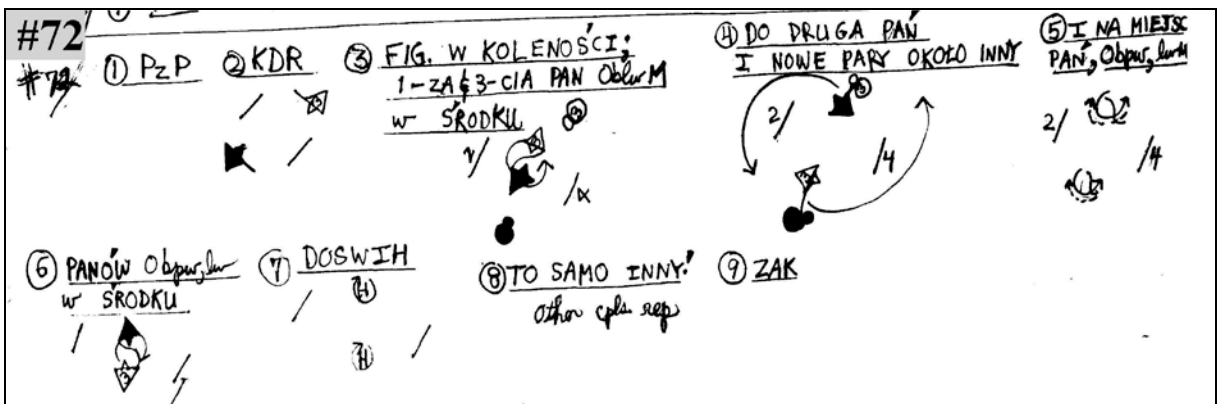 #72
#72
① PzP
② KDR
③ FIG. W KOLENOŚCI;
1-ZA & 3-CIA PAN Oblw M
w ŚRODKU
④ DO DRUGA PAŃ
I NOWE PARY OKOŁO INNY
2/
/4
⑤ I NA MIEJSC
PAŃ, Obpw, lw M
2/
/4
⑥ PANÓW Obpw, lw
w ŚRODKU
3
⑦ DOSWIH
H
H
⑧ TO SAMO INNY!
Other cpls rep
⑨ ZAK